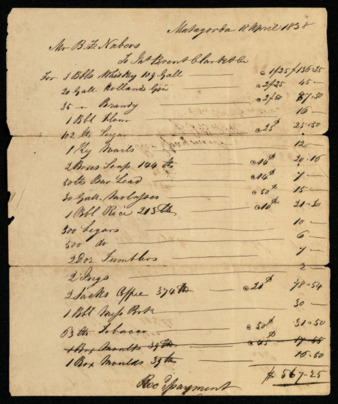 Matagorda 12 April 1838
Mr B. F. Nabors
To Jno Brent Clark & Co
For 1 Bble Whiskey 109 Gall @ 1/25 $136-25
20 Gall Holland Gin @ 2/25 45 -
35 " Brandy @ 2/50 87-50
1 Bbl Flour 16 -
102 lb Sugar @ 25 25-50
1 Kg Nails 12 -
2 Boxes Soap 144 lb 20-16
50 lbs Bar Lead 7 -
30 Gall Molasses @ 50 15 -
1 Bbl Rice 213 lb @ 10 21-30
300 Segars 10 -
500 do 6 -
2 Doz Tumblers 7 -
2 Jugs 2 -
2 Sacks Coffee 374 lb 78-54
1 Bbl Mess Pork 30 -
63 lb Tobacco @ 50 31-50
1 Box Moulds 39 lb @ 45 17-55
1 Box Moulds 39 lb
$ 567-25
Rec payment